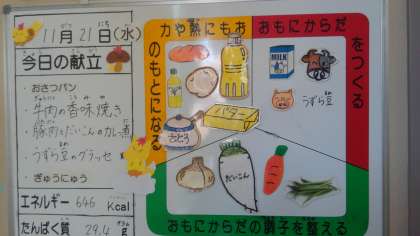 11月21日(水)
今日の献立
・おさつパン
・牛肉の香味焼き
・豚肉とだいこんのカレー煮
・うずら豆のグラッセ
・ぎゅうにゅう
エネルギー 646 Kcal
たんぱく質 29.4 グラム g
力や熱になる
おもにからだ
をつくる
のもとになる
MILK
うずら豆
バター
さとう
だいこん
おもにからだの調子を整える